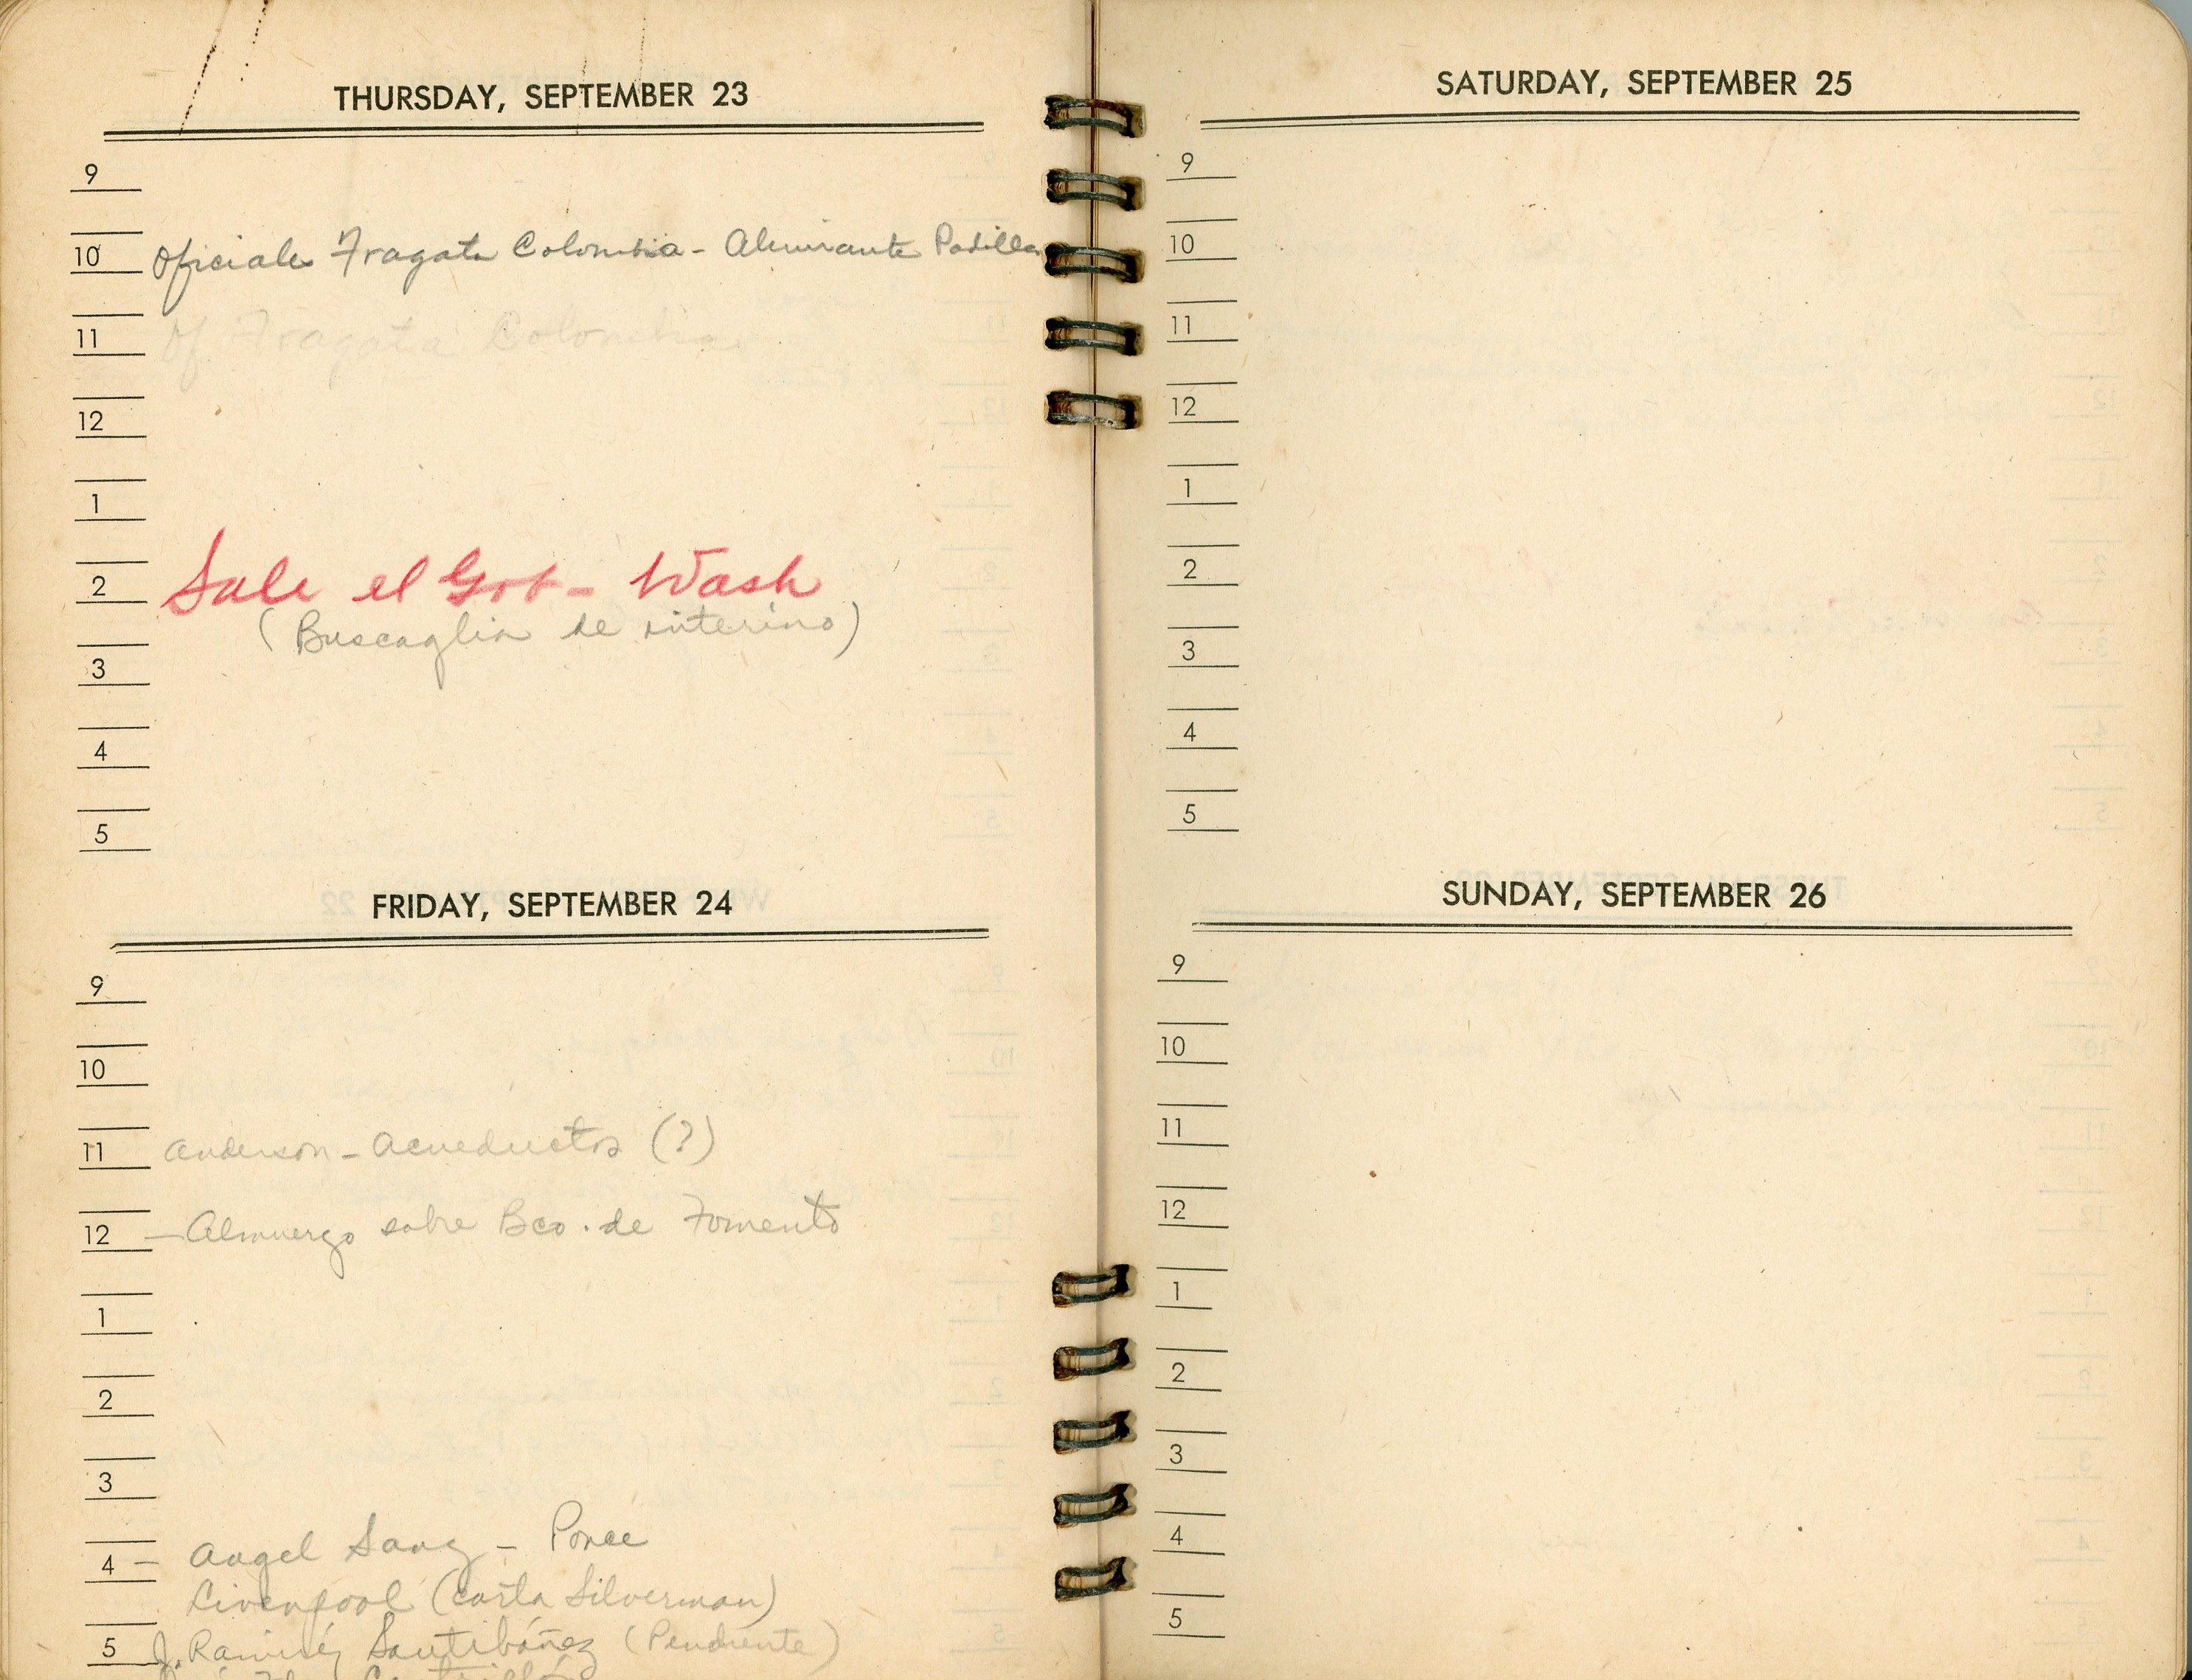 THURSDAY, SEPTEMBER 23
9
10 Oficiales Fragata Colombia - Almirante Padilla
11 Of Fragata Colombia
12
1
2 Sale el Gob - Wash
(Buscaglia de interino)
3
4
5
FRIDAY, SEPTEMBER 24
9
10
11 Anderson - Acueductos (?)
12 - Almuerzo sobre Bco. de Fomento
1
2
3
4 - Angel Sanz - Ponce
Livenpool (carta Silverman)
5 J. Ramírez Santibáñez (Pendiente)
SATURDAY, SEPTEMBER 25
9
10
11
12
1
2
3
4
5
SUNDAY, SEPTEMBER 26
9
10
11
12
1
2
3
4
5